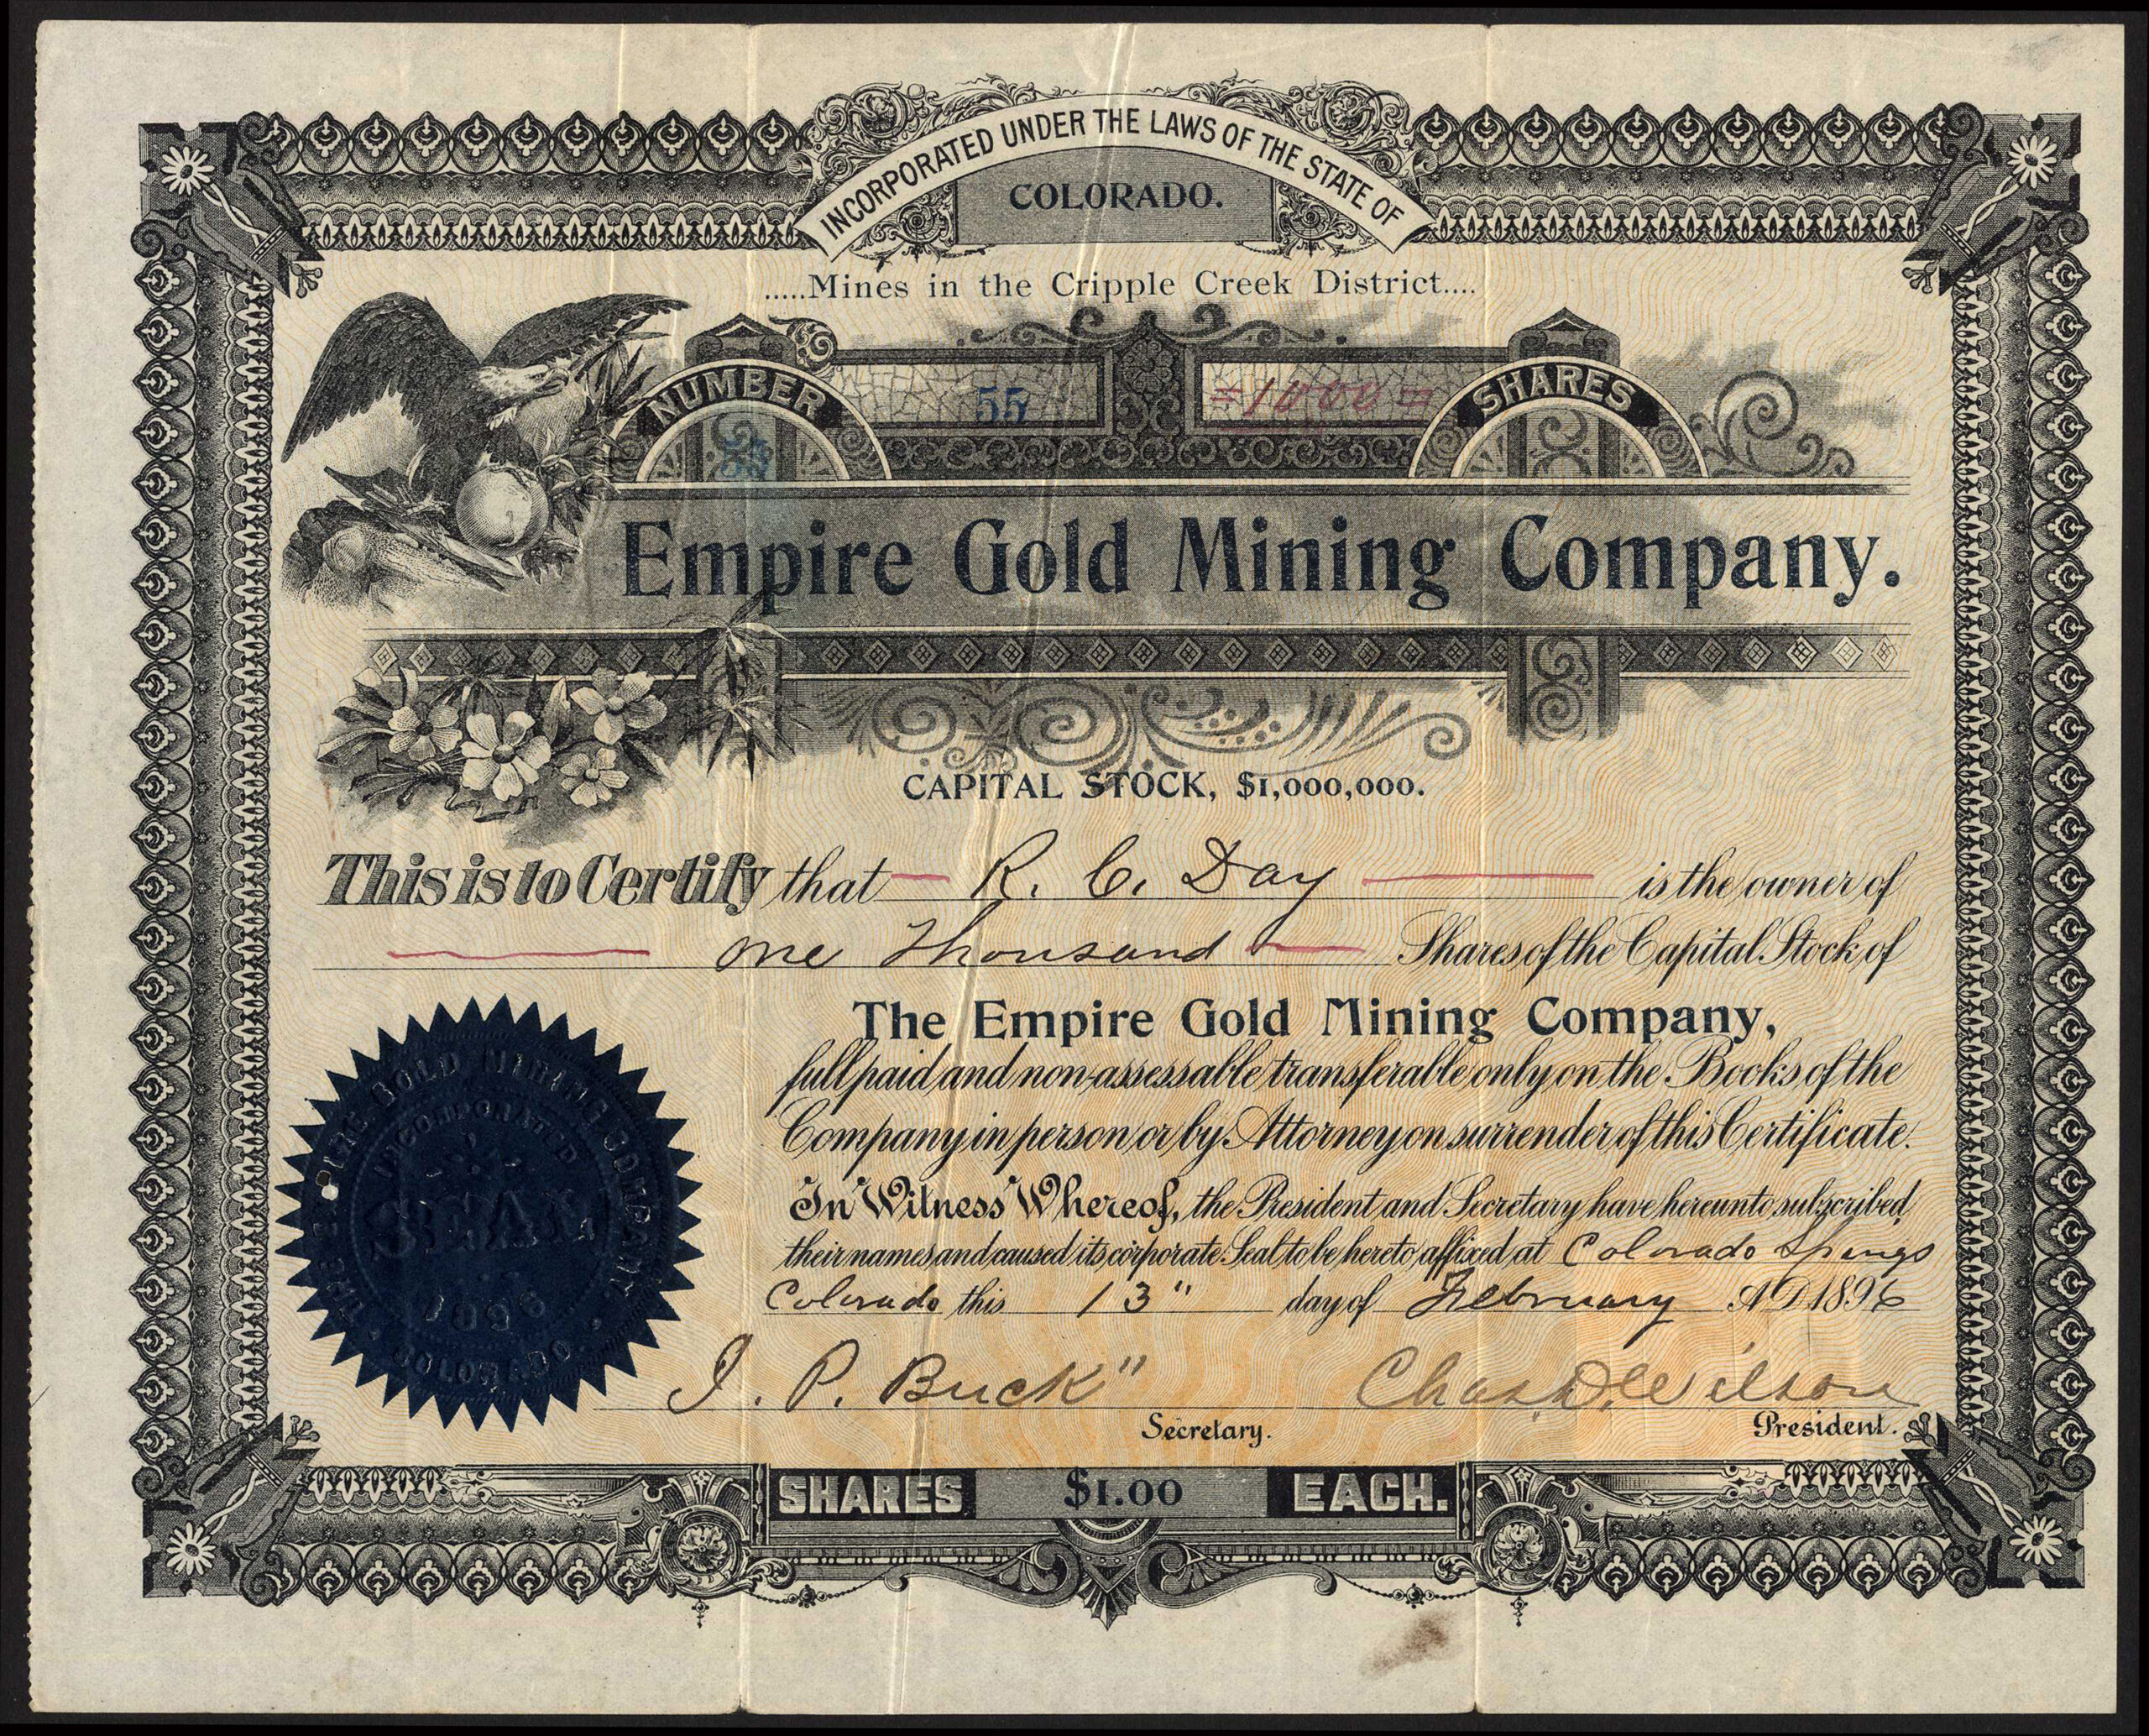 INCORPORATED UNDER THE LAWS OF THE STATE OF
COLORADO.
.....Mines in the Cripple Creek District....
NUMBER 55 =1000= SHARES
55
Empire Gold Mining Company.
CAPITAL STOCK, $1,000,000.
This is to Certify that R. C. Day is the owner of
one Thousand Shares of the Capital Stock of
The Empire Gold Mining Company,
full paid and non-assessable transferable only on the Books of the
Company in person or by Attorney on surrender of this Certificate.
In Witness Whereof, the President and Secretary have hereunto subscribed
their names and caused its corporate Seal to be hereto affixed at Colorado Springs
Colorado this 13" day of February A.D. 1896
THE EMPIRE GOLD MINING COMPANY
INCORPORATED
SEAL
1896
COLORADO.
J. P. Buck" Chas. D. Wilson
Secretary. President.
SHARES $1.00 EACH.